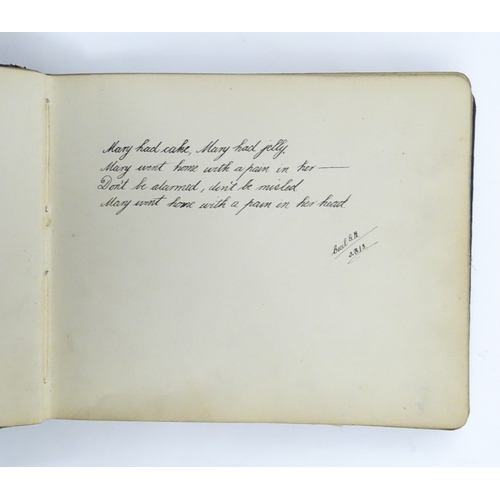 Mary had cake, Mary had jelly,
Mary went home with a pain in her —
Don't be alarmed, don't be misled
Mary went home with a pain in her head.